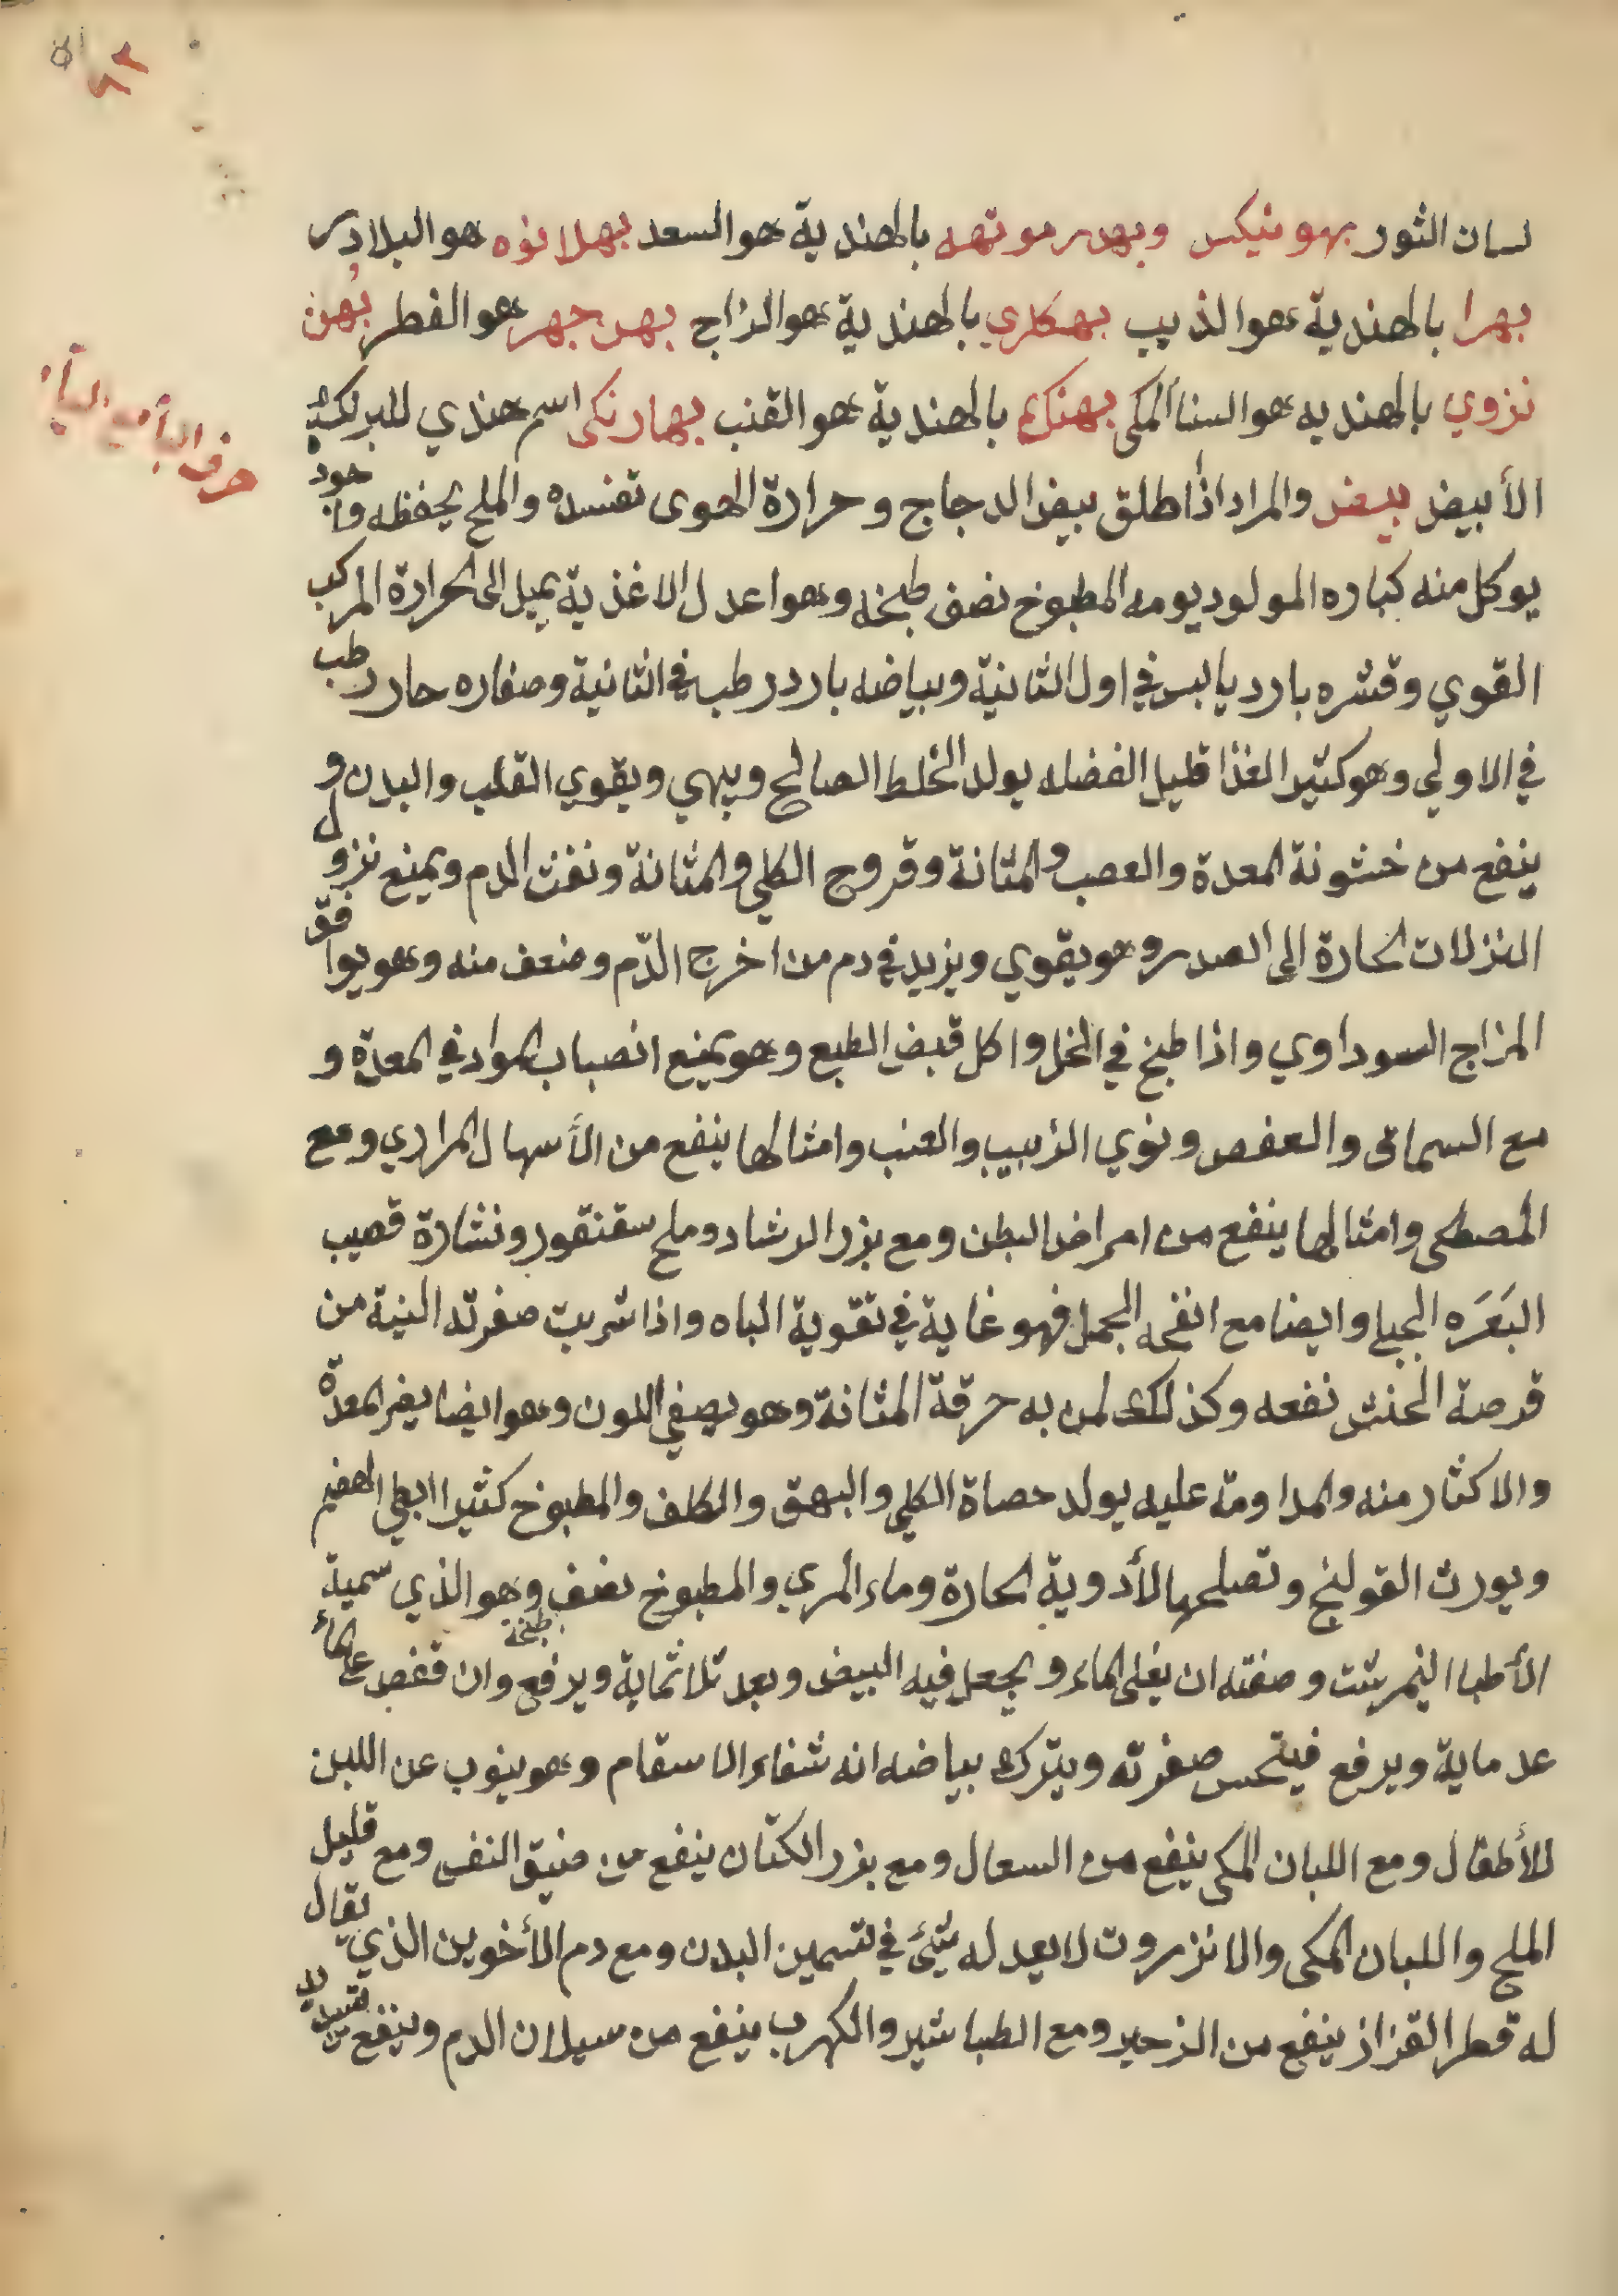 ٨٢
لسان الثور بهو نيكس وبهدر موتهه بالهندية هو السعد بهلانوه هو البلادر
بهرا بالهندية هو الذيب بهكلري بالهندية هو الزاج بهن جهر هو الفطر بُهن
نزوي بالهنديه هو السنا المكي بهنك بالهندية هو القنب بهارنكى اسم هندي للبرنك
حرف البأ مع اليأ
الأبيض بيض والمراد اذا اطلق بيض الدجاج وحرارة الهوى تفسده والملح يحفظه واجود
يوكل منه كباره المولود يومه المطبوخ نصف طبخه وهو اعدل الاغذية يميل الى الحرارة المركب
القوي وقشره بارد يابس في اول الثانية وبياضه بارد رطب في الثانية وصفاره حار رطب
في الاولي وهو كثير الغذا قليل الفضله يولد الخلط الصالح ويبهي ويقوي القلب والبدن و
ينفع من خشونة المعدة والعصب والمثانة وقروح الكلي والمثانة ونفث الدم ويمنع نزول
النزلات الحارة الى الصدر وهو يقوي ويزيد في دم من اخرج الدّم وضعف منه وهو يوافق
المزاج السوداوي واذا طبخ في الخل واكل قبض الطبع وهو يمنع انصباب المواد في المعدة و
مع السماق والعفص ونوي الزبيب والعنب وامثالها ينفع من الأسهال المراري ومع
المصطكى وامثالها ينفع من امراض البطن ومع بزر الرشاد وملح سقنقور ونشارة قصيب
البَعَرَه الجبلي وايضا مع انفحه الجمل فهو غاية في تقوية الباه واذا شربت صفرته النية من
قرصة الحنش نفعه وكذلك لمن به حرقة المثانة وهو يصفي اللون وهو ايضا يضر المعدة
والاكثار منه والمداومة عليه يولد حصاة الكلي والبهق والكلف والمطبوخ كثيرا ابطي الهضم
ويورث القولنج وتصلحها الأدوية الحارة وماء المري والمطبوخ نصف طبخة وهو الذي سمية
الأطبا النيمرشت وصفته ان يغلى الماء ويجعل فيه البيض وبعد ثلاثماية ويرفع وان فقص على المأ
عد ماية ويرفع فيتحس صفرته ويترك بياضه انه شفاء الاسقام وهو ينوب عن اللبن
للأطفال ومع اللبان المكى ينفع من السعال ومع بزر الكتان ينفع من ضيق النفس ومع قليل
الملح واللبان المكى والانزروت لا يعدله شئ في تسمين البدن ومع دم الأخوين الذي يقال
له قطر القزاز ينفع من الزحير ومع الطباشير والكهرب ينفع من سيلان الدم وينفع من